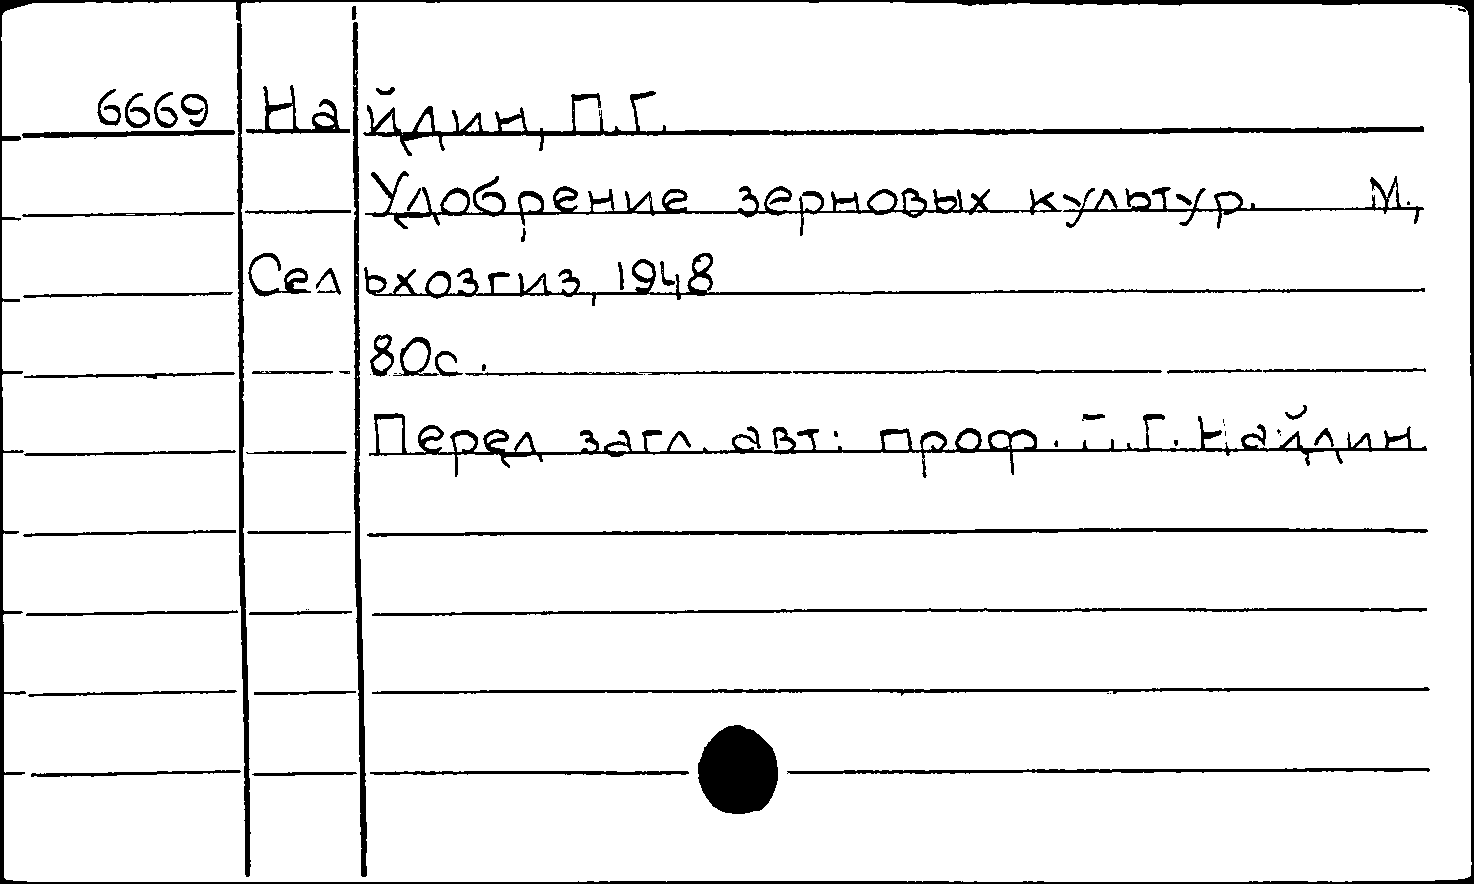 6669 Найдин, П.Г.
Удобрение зерновых культур. М.,
Сельхозгиз, 1948
80с.
Перед загл. авт: проф. П.Г. Найдин